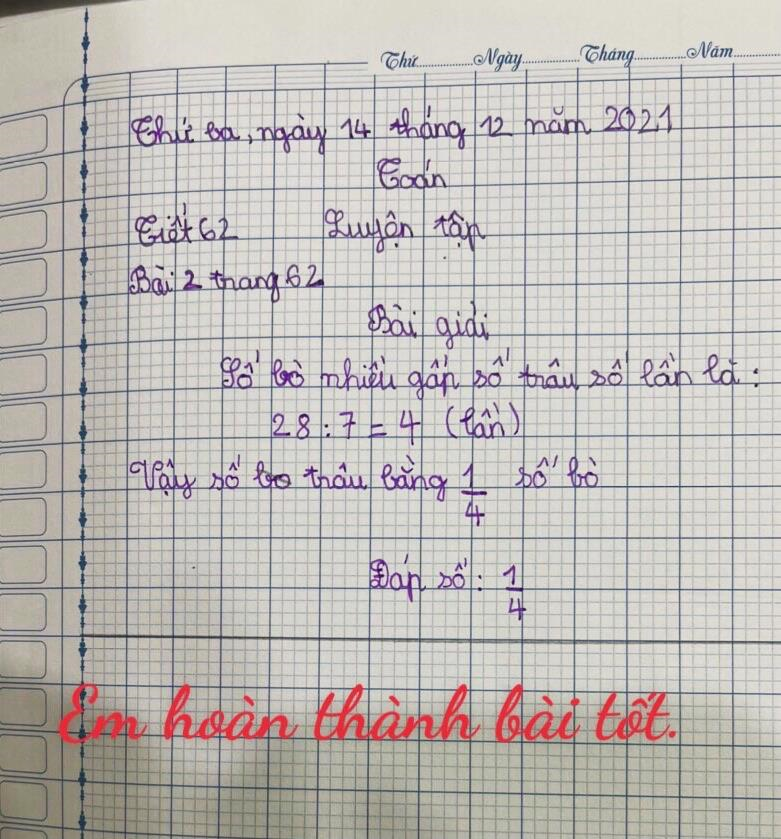 Thứ Ngày Tháng Năm
Thứ ba, ngày 14 tháng 12 năm 2021
Toán
Tiết 62 Luyện tập
Bài 2 trang 62
Bài giải
Số bò nhiều gấp số trâu số lần là:
28 : 7 = 4 (lần)
Vậy số trâu bằng 1/4 số bò
Đáp số: 1/4
Em hoàn thành bài tốt.